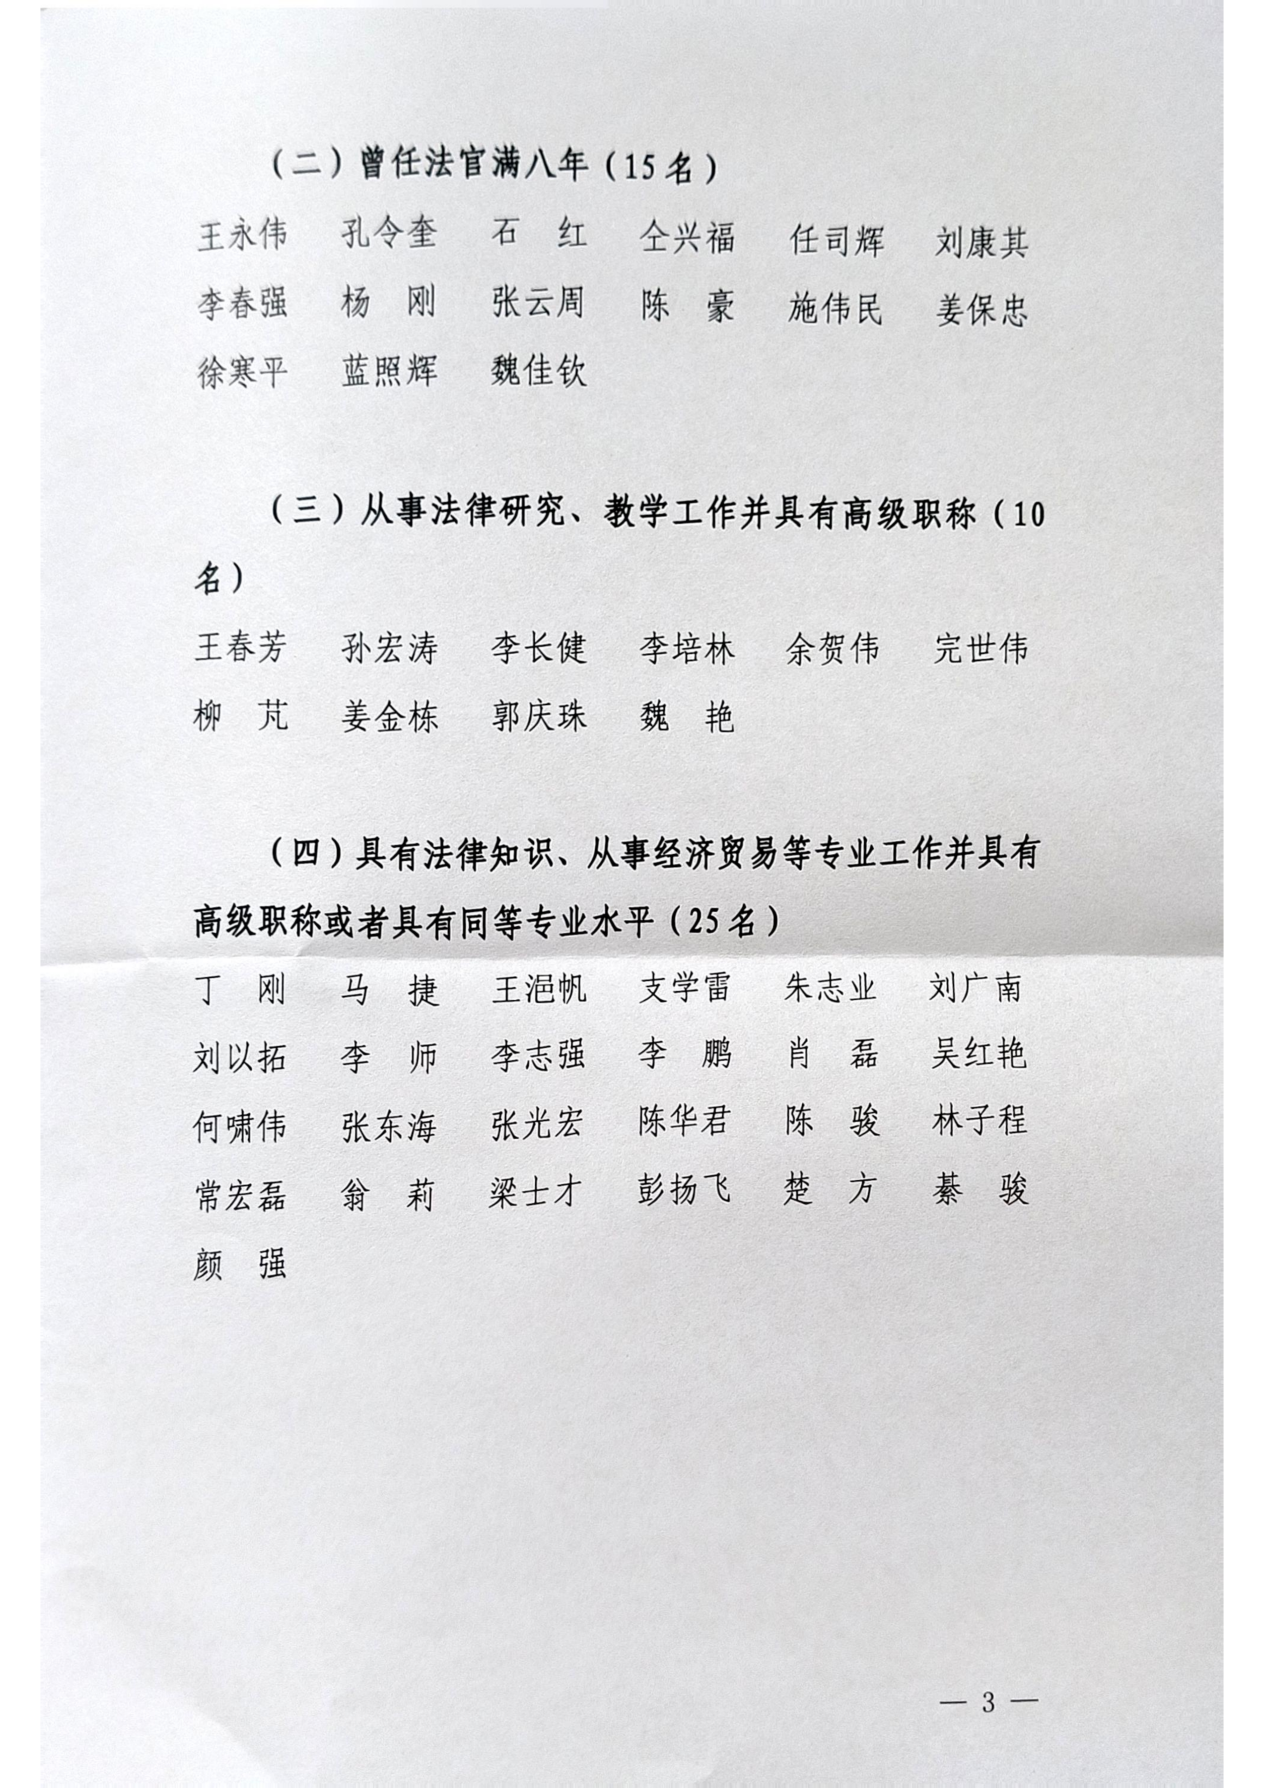 （二）曾任法官满八年（15名）
王永伟 孔令奎 石　红 仝兴福 任司辉 刘康其
李春强 杨　刚 张云周 陈　豪 施伟民 姜保忠
徐寒平 蓝照辉 魏佳钦
（三）从事法律研究、教学工作并具有高级职称（10
名）
王春芳 孙宏涛 李长健 李培林 余贺伟 完世伟
柳　芃 姜金栋 郭庆珠 魏　艳
（四）具有法律知识、从事经济贸易等专业工作并具有
高级职称或者具有同等专业水平（25名）
丁　刚 马　捷 王浥帆 支学雷 朱志业 刘广南
刘以拓 李　师 李志强 李　鹏 肖　磊 吴红艳
何啸伟 张东海 张光宏 陈华君 陈　骏 林子程
常宏磊 翁　莉 梁士才 彭扬飞 楚　方 綦　骏
颜　强
— 3 —